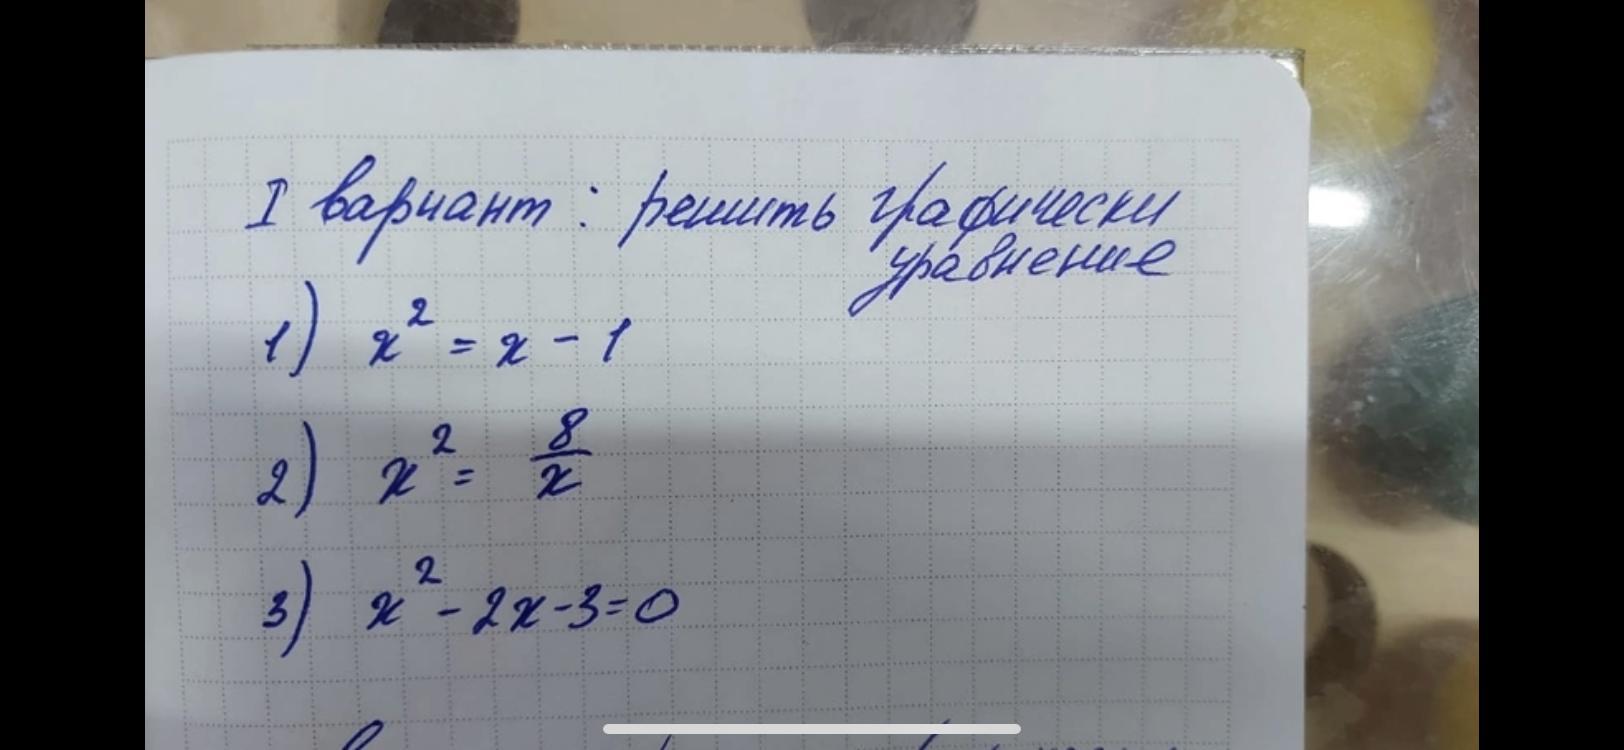 I вариант: решить графически
уравнение
1) x² = x - 1
2) x² = 8/x
3) x² - 2x - 3 = 0